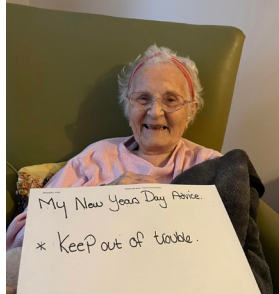 My New Years Day Advice.
* Keep out of trouble.